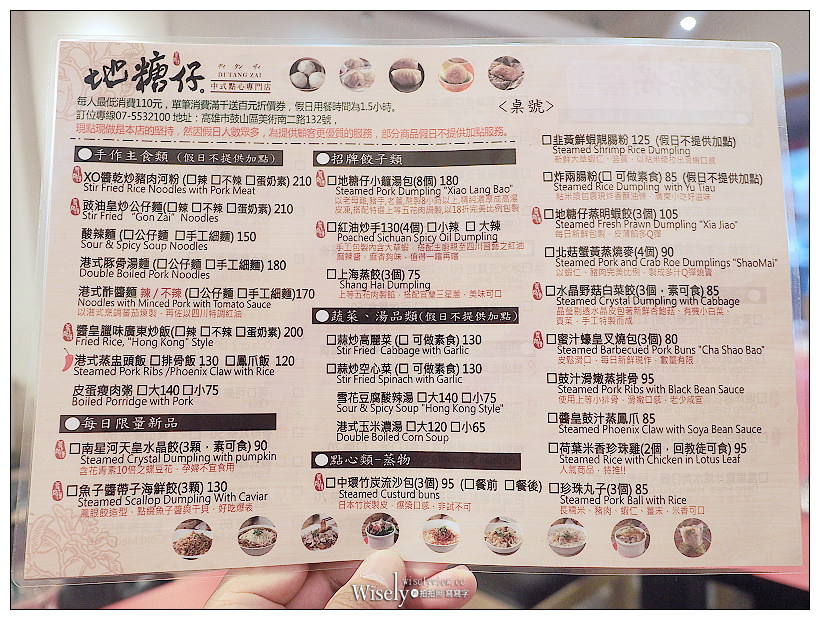 地糖仔
ディ タン ザィ
DI TANG ZAI
中式點心專門店
<桌號>
每人最低消費110元，單筆消費滿千送百元折價券，假日用餐時間為1.5小時。
訂位專線07-5532100 地址：高雄市鼓山區美術南二路132號，
現點現做是本店的堅持，然因假日人數眾多，為提供顧客更優質的服務，部分商品假日不提供加點服務。
●手作主食類（假日不提供加點）
XO醬乾炒豬肉河粉(□辣 □不辣 □蛋奶素) 210
Stir Fried Rice Noodles with Pork Meat
豉油皇炒公仔麵(□辣 □不辣 □蛋奶素) 210
Stir Fried "Gon Zai" Noodles
酸辣麵 (□公仔麵 □手工細麵) 150
Sour & Spicy Soup Noodles
港式豚骨湯麵 (□公仔麵 □手工細麵) 180
Double Boiled Pork Noodles
港式酢醬麵 辣 / 不辣 (□公仔麵 □手工細麵)170
Noodles with Minced Pork with Tomato Sauce
醬皇臘味廣東炒飯(□辣 □不辣 □蛋奶素) 200
Fried Rice, "Hong Kong" Style
港式蒸盅頭飯 □排骨飯 130 □鳳爪飯 120
Steamed Pork Ribs /Phoenix Claw with Rice
皮蛋瘦肉粥 □大140 □小75
Boiled Porridge with Pork
●每日限量新品
□南星河天皇水晶餃(3顆，素可食) 90
Steamed Crystal Dumpling with pumpkin
含花青素10倍之蝶豆花，孕婦不宜食用
□魚子醬帶子海鮮餃(3顆) 130
Steamed Scallop Dumpling With Caviar
鳳眼餃造型，點綴魚子醬與干貝，好吃爆表
●招牌餃子類
□地糖仔小籠湯包(8個) 180
Steamed Pork Dumpling "Xiao Lang Bao"
□紅油炒手130(4個) □小辣 □ 大辣
Poached Sichuan Spicy Oil Dumpling
麻辣醬，麻香夠味，值得一嚐再嚐
□上海蒸餃(3個) 75
Shang Hai Dumpling
上等五花肉製餡，搭配宜蘭三星蔥，美味可口
●蔬菜、湯品類(假日不提供加點)
□蒜炒高麗菜 (□ 可做素食) 130
Stir Fried Cabbage with Garlic
□蒜炒空心菜 (□ 可做素食) 130
Stir Fried Spinach with Garlic
雪花豆腐酸辣湯 □大140 □小75
Sour & Spicy Soup "Hong Kong Style"
港式玉米濃湯 □大120 □小65
Double Boiled Corn Soup
●點心類-蒸物
□中環竹炭流沙包(3個) 95 (□餐前 □餐後)
Steamed Custurd buns
日本竹炭製皮，爆漿口感，非試不可
□韭黃鮮蝦靚腸粉 125 (假日不提供加點)
Steamed Shrimp Rice Dumpling
新鮮大草蝦仁、韭黃，以粘米漿拉出滑嫩口感
□炸兩腸粉(□ 可做素食) 85 (假日不提供加點)
Steamed Rice Dumpling with Yu Tiau
□地糖仔蒸明蝦餃(3個) 105
Steamed Fresh Prawn Dumpling "Xia Jiao"
每日新鮮包製，皮薄餡多Q彈
□北菇蟹黃蒸燒麥(4個) 90
Steamed Pork and Crab Roe Dumplings "ShaoMai"
以蝦仁、豬肉完美比例，製成多汁Q彈燒賣
□水晶野菇白菜餃(3個，素可食) 85
Steamed Crystal Dumpling with Cabbage
晶瑩剔透水晶皮包著新鮮杏鮑菇、有機小白菜、
貢菜，手工特製而成
□蜜汁蠔皇叉燒包(3個) 80
Steamed Barbecued Pork Buns "Cha Shao Bao"
皮鬆滑口，每日新鮮現作，數量有限
□豉汁滑嫩蒸排骨 95
Steamed Pork Ribs with Black Bean Sauce
使用上等小排骨，滑嫩口感，老少咸宜
□醬皇豉汁蒸鳳爪 85
Steamed Phoenix Claw with Soya Bean Sauce
□荷葉米香珍珠雞(2個，回教徒可食) 95
Steamed Rice with Chicken in Lotus Leaf
人氣商品，特推!!
□珍珠丸子(3個) 85
Steamed Pork Ball with Rice
長糯米、豬肉、蝦仁、薑末，米香可口
wiselyview.cc
Wisely 拍拍照 寫寫字